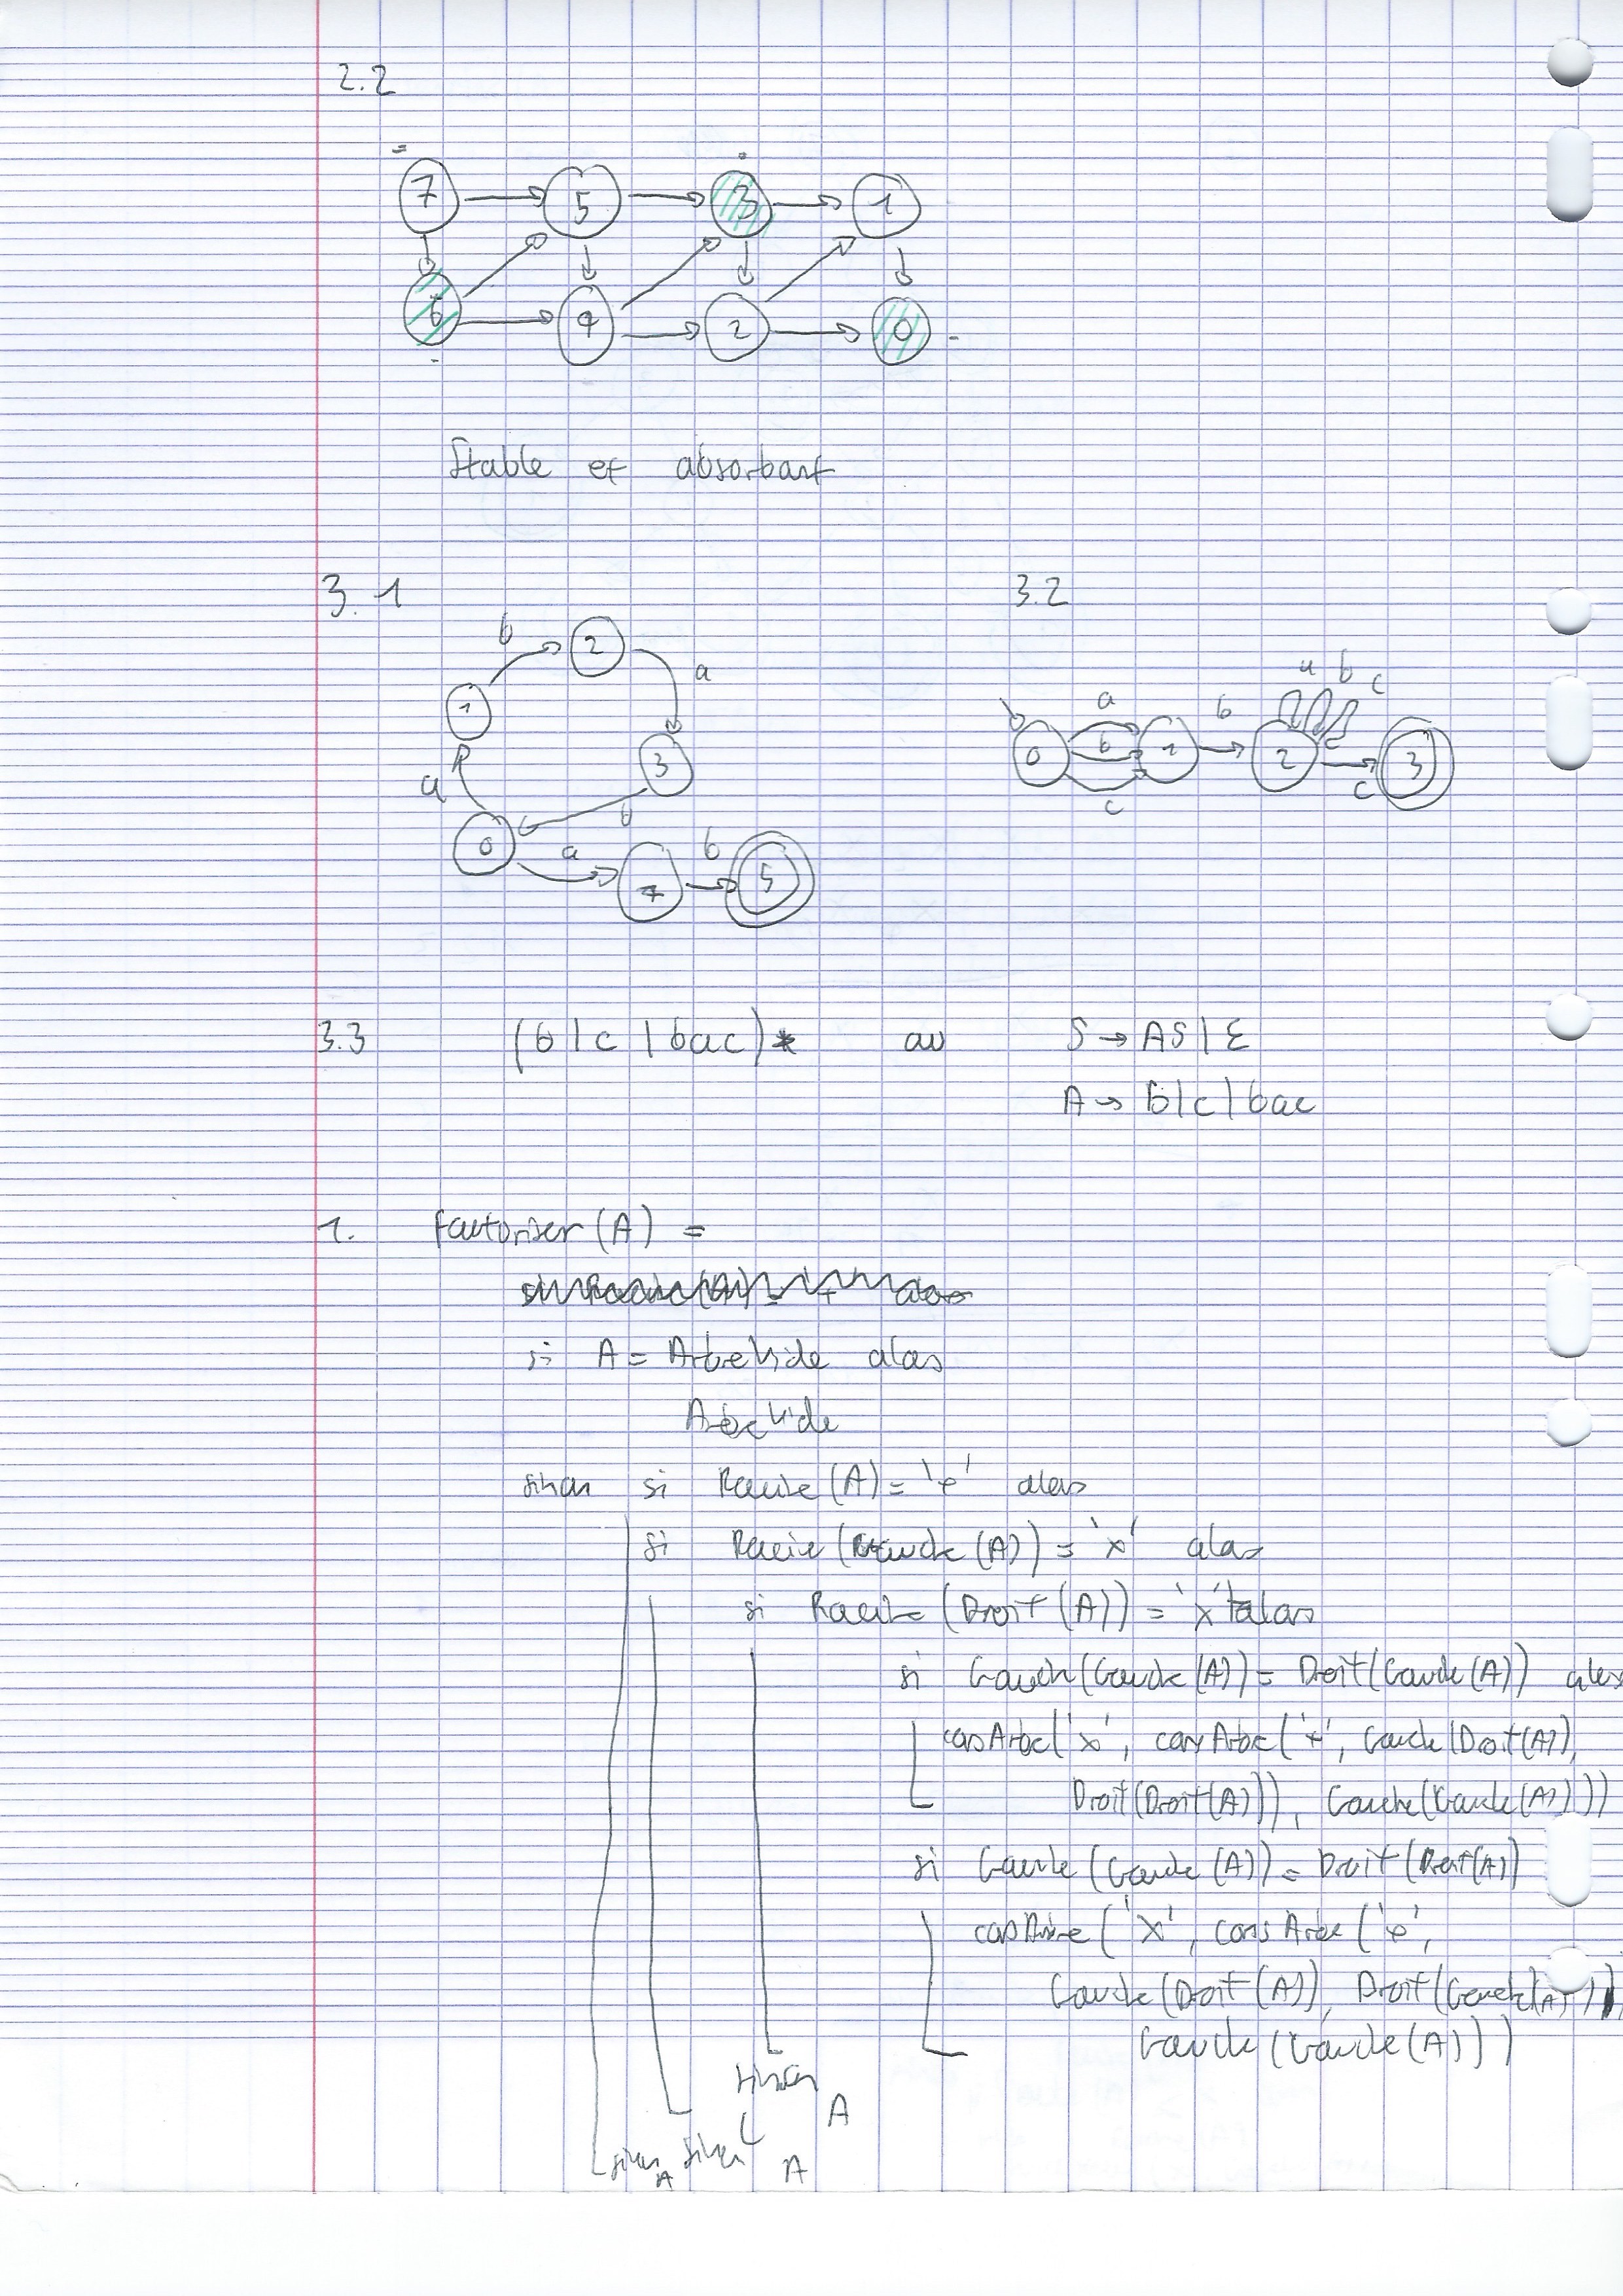 2.2
7 5 3 1
6 4 2 0
Stable et absorbant
3.1
b
2
a
1
3
a
b
0
a
4
b
5
3.2
a b c
a
b
0
b
1
2
c
3
c
3.3 (b|c|bac)* ou S → AS|ε
A → b|c|bac
1. Factoriser(A) =
si A = ArbreVide alors
ArbreVide
sinon si Racine(A) = '+' alors
si Racine(Gauche(A)) = 'x' alors
si Racine(Droit(A)) = 'x' alors
si Gauche(Gauche(A)) = Droit(Gauche(A)) alors
consArbre('x', consArbre('+', Gauche(Droit(A)),
Droit(Droit(A))), Gauche(Gauche(A)))
si Gauche(Gauche(A)) = Droit(Droit(A))
consArbre('x', consArbre('+',
Gauche(Droit(A)), Droit(Gauche(A))),
Gauche(Gauche(A)))
sinon
A
sinon A sinon A